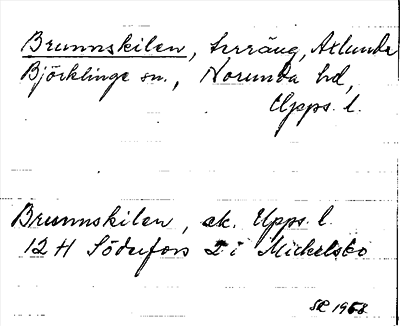 Brunnskilen, terräng, Axlunda
Björklinge sn., Norunda hd,
Upps. l.
Brunnskilen, ek. Upps. l.
12 H Söderfors I i Mickelsbo
SR 1968